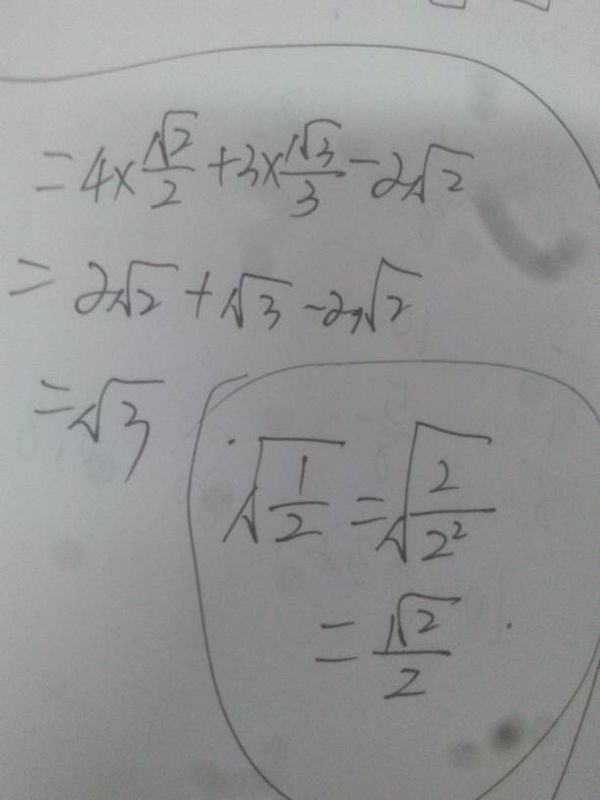 =4×√2/2+3×√3/3-2√2
=2√2+√3-2√2
=√3
√(1/2)=√(2/2²)
=√2/2